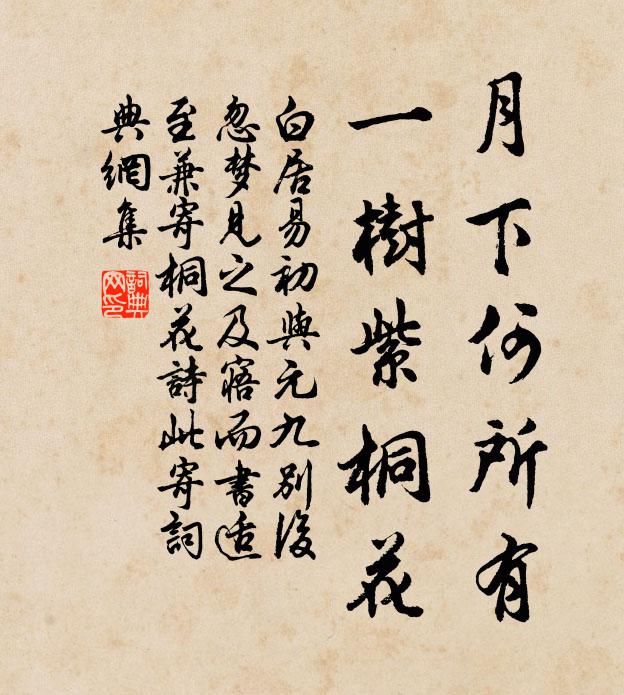 月下何所有
一樹紫桐花
白居易初與元九别後
忽梦見之及寤而書适
至兼寄桐花詩此寄詞
典網集
詞典
网印